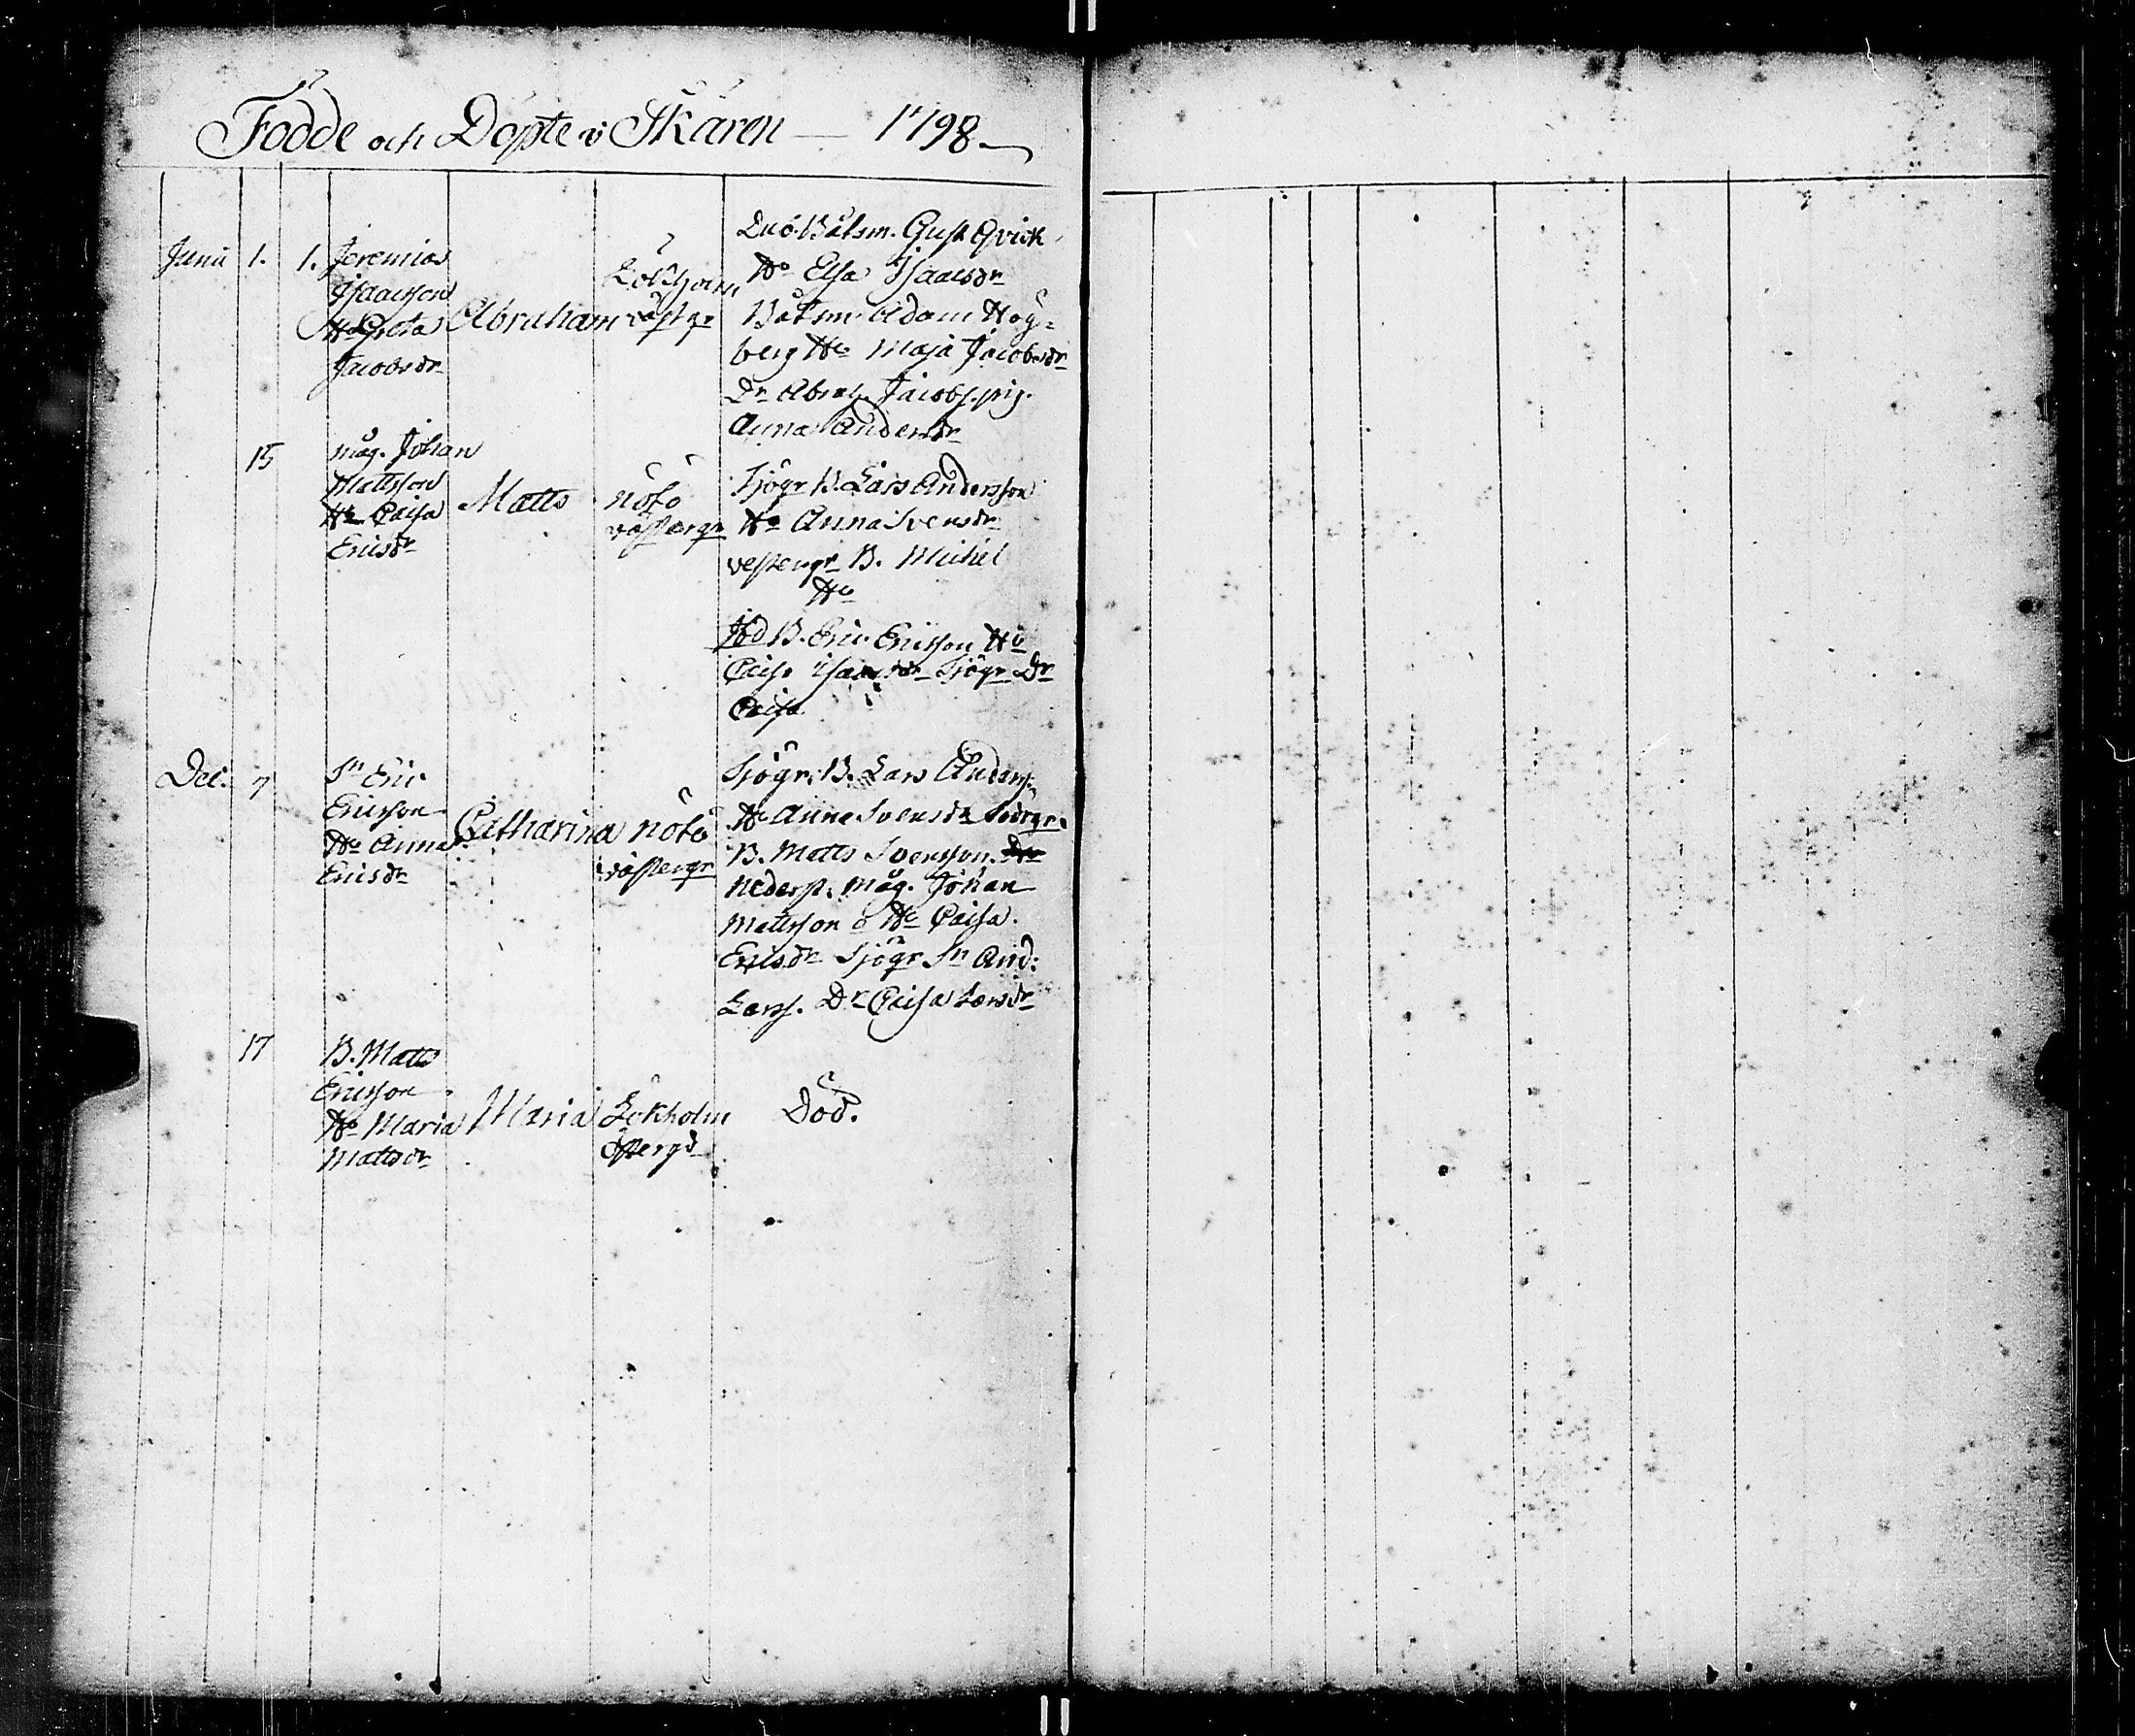 Födde och Döpte i Skären — 1798.
Junii 1. 1. Jeremias
Isaacsson
Hu Greta
Jacobsdr
Abraham
Lökholm
västgr
Båtsm. Gust Qvick
Hu Elsa Isaacsdr
Båtsm. Adam Hög=
berg Hu Maja Jacobsdr
Dr. Abrah. Jacobs. pig.
Anna Andersdr
15 måg. Johan
Mattsson
Hu Caisa
Ericsdr
Matts
nötö
västergr
Sjögr B. Lars Andersson
Hu Anna Svensdr
vestergr B. Michel
Hu
B. Eric Ericsson Hu
Caisa Isaacsdr Sjögr Dr
Caisa
Dec. 7 Sn Eric
Ericsson
Hu Anna
Ericsdr
Catharina
nötö
västergr
Sjögr. B. Lars Anders.
Hu Anna Svensdr Södrgr.
B. Matts Svensson.
nederst. måg. Johan
Mattsson o Hu Caisa.
Ericsdr Sjögr Sn And:
Larss. Dr Caisa Larsdr
17 B. Matts
Ericsson
Hu Maria
Mattsdr
Maria
Lökholm
östergd
Död.